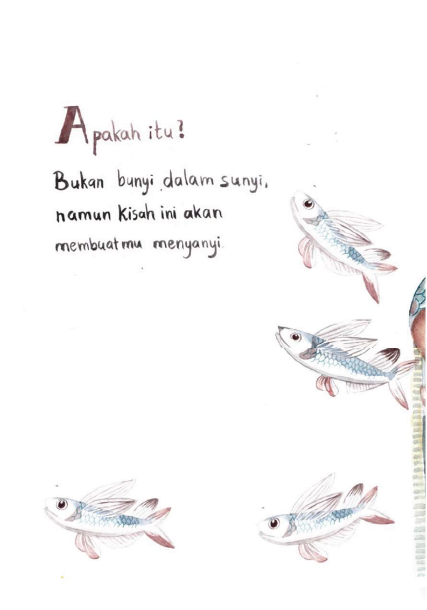 Apakah itu?
Bukan bunyi dalam sunyi,
namun kisah ini akan
membuatmu menyanyi.